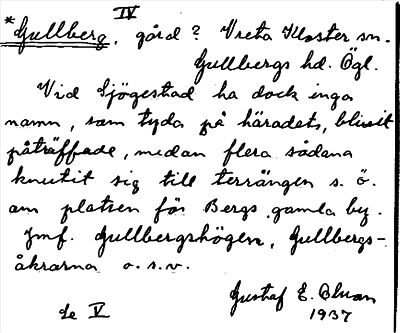 IV
*Gullberg, gård? Vreta Kloster sn.
Gullbergs hd. Ögl.
Vid Sjögestad ha dock inga
namn, som tyda på häradets, blivit
påträffade, medan flera sådana
knutit sig till terrängen s. ö.
om platsen för Bergs gamla by.
Jmf. Gullbergshögen, Gullbergs-
åkrarna o.s.v.
Gustaf E.
1937
se V